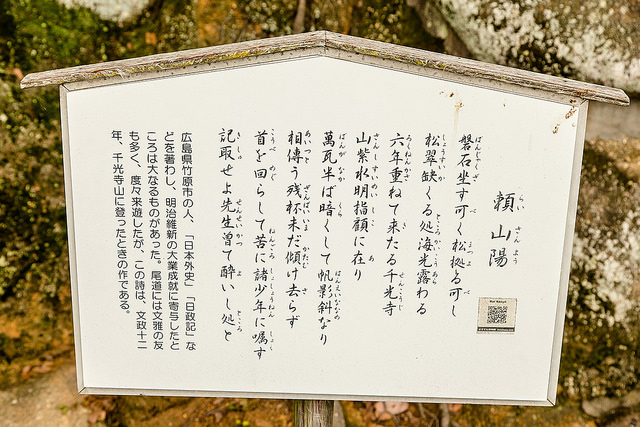 頼山陽
らい さんよう
磐石坐す可く松拠る可し
松翠缺くる処海光露わる
六年重ねて来たる千光寺
山紫水明指顧に在り
萬瓦半ば暗くして帆影斜なり
相傳う残杯未だ傾け去らず
首を回らして苦に諸少年に嘱す
記取せよ先生曽て酔いし処と
広島県竹原市の人、「日本外史」「日政記」な
どを著わし、明治維新の大業成就に寄与したと
ころは大なるものがあった。尾道には文雅の友
も多く、度々来遊したが、この詩は、文政十二
年、千光寺山に登ったときの作である。